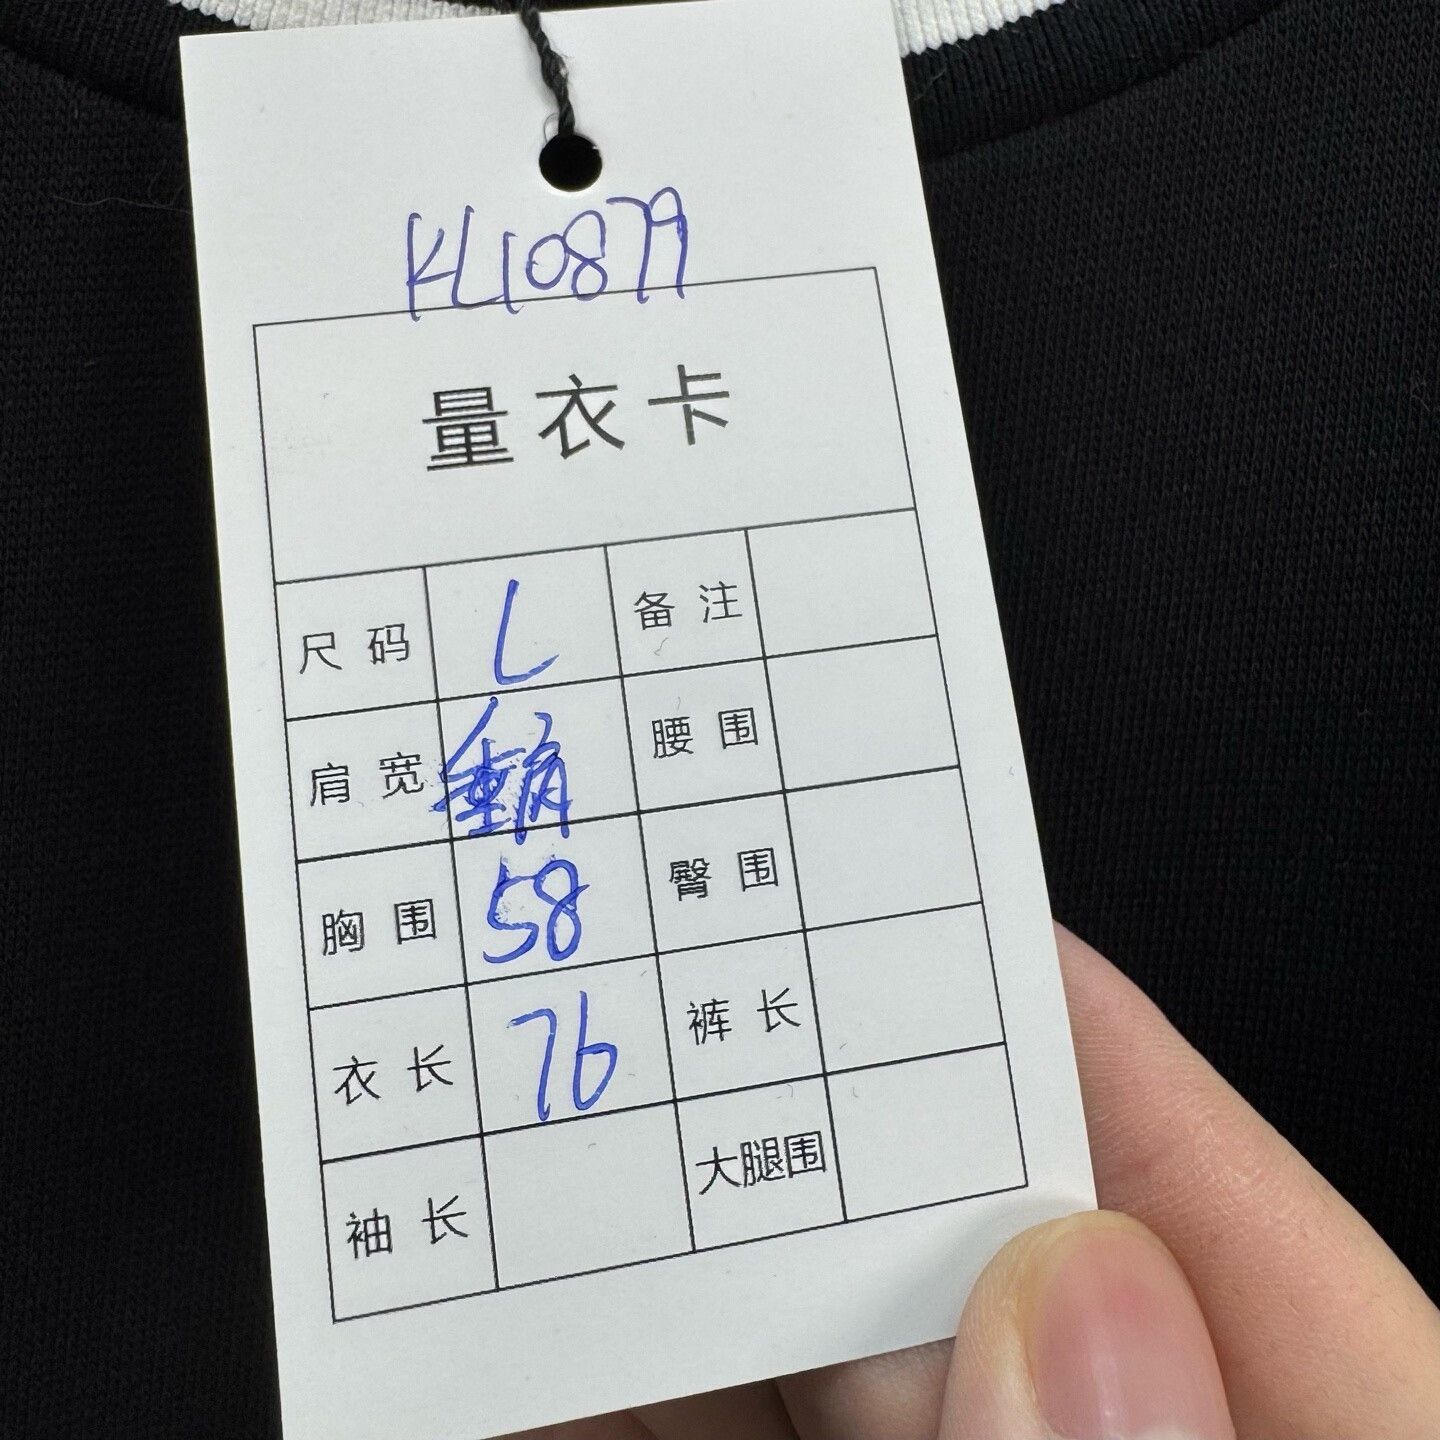 KL10879
量衣卡
尺码 L 备注
肩宽 垂肩 腰围
胸围 58 臀围
衣长 76 裤长
袖长 大腿围